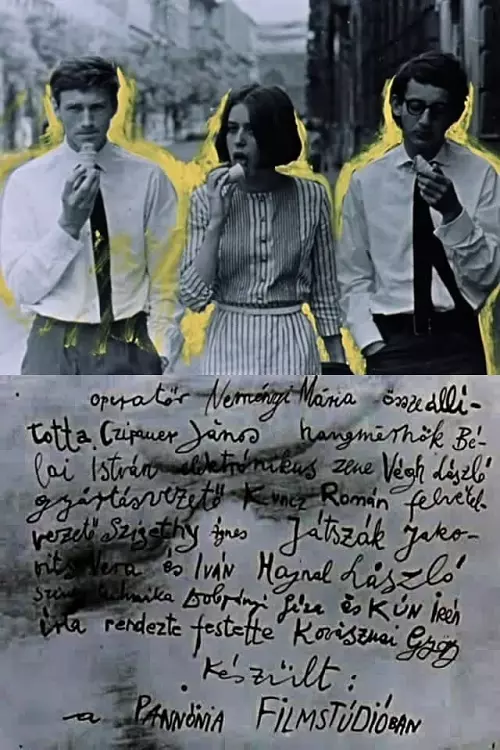 operatőr Neményi Mária összeállí-
totta Czipauer János hangmérnök Bé-
lai István elektrónikus zene Végh László
gyártásvezető Kunz Román felvétel-
vezető Szigethy Ágnes Játszák Jako-
vits Vera és IVÁN Hajnal László
színes technika Dobrányi Géza és KÚN Irén
írta rendezte festette Kovásznai György
készült:
a PANNÓNIA FILMSTÚDIÓBAN